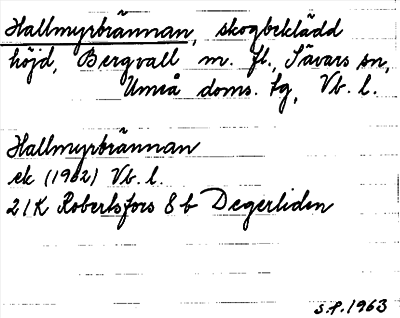 Hallmyrbrännan, skogbeklädd
höjd, Bergvall m. fl., Sävars sn,
Umeå doms. tg, Vb. l.
Hallmyrbrännan
ek (1962) Vb. l.
21K Robertsfors 8 b Degerliden
S.P. 1963